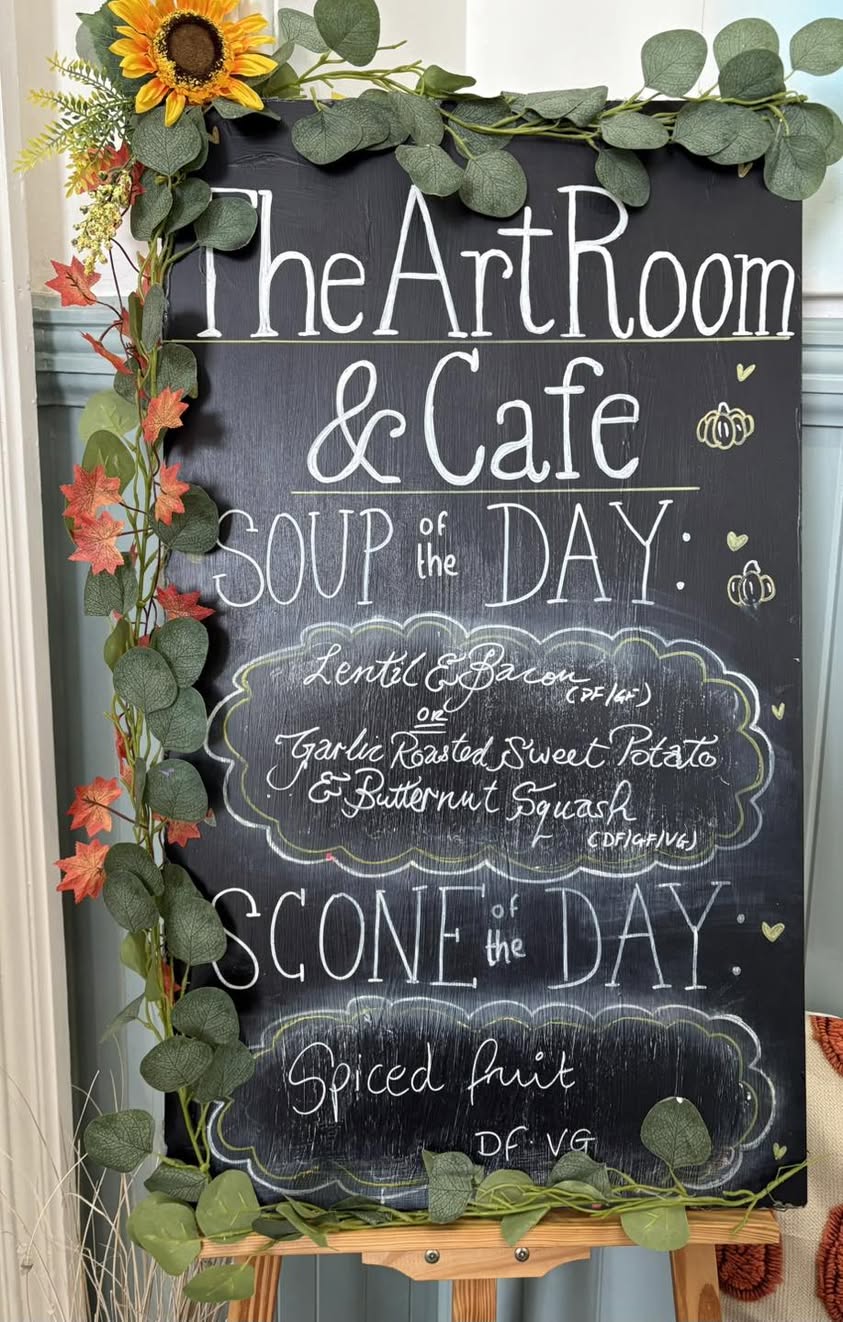 The Art Room
& Cafe
SOUP of the DAY:
Lentil & Bacon (DF/GF)
OR
Garlic Roasted Sweet Potato
& Butternut Squash
(DF/GF/VG)
SCONE of the DAY:
Spiced fruit
DF · VG